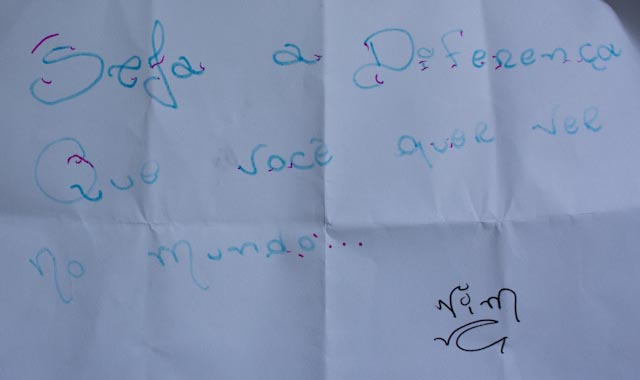 Seja a Diferença
Que você quer ver
no mundo...